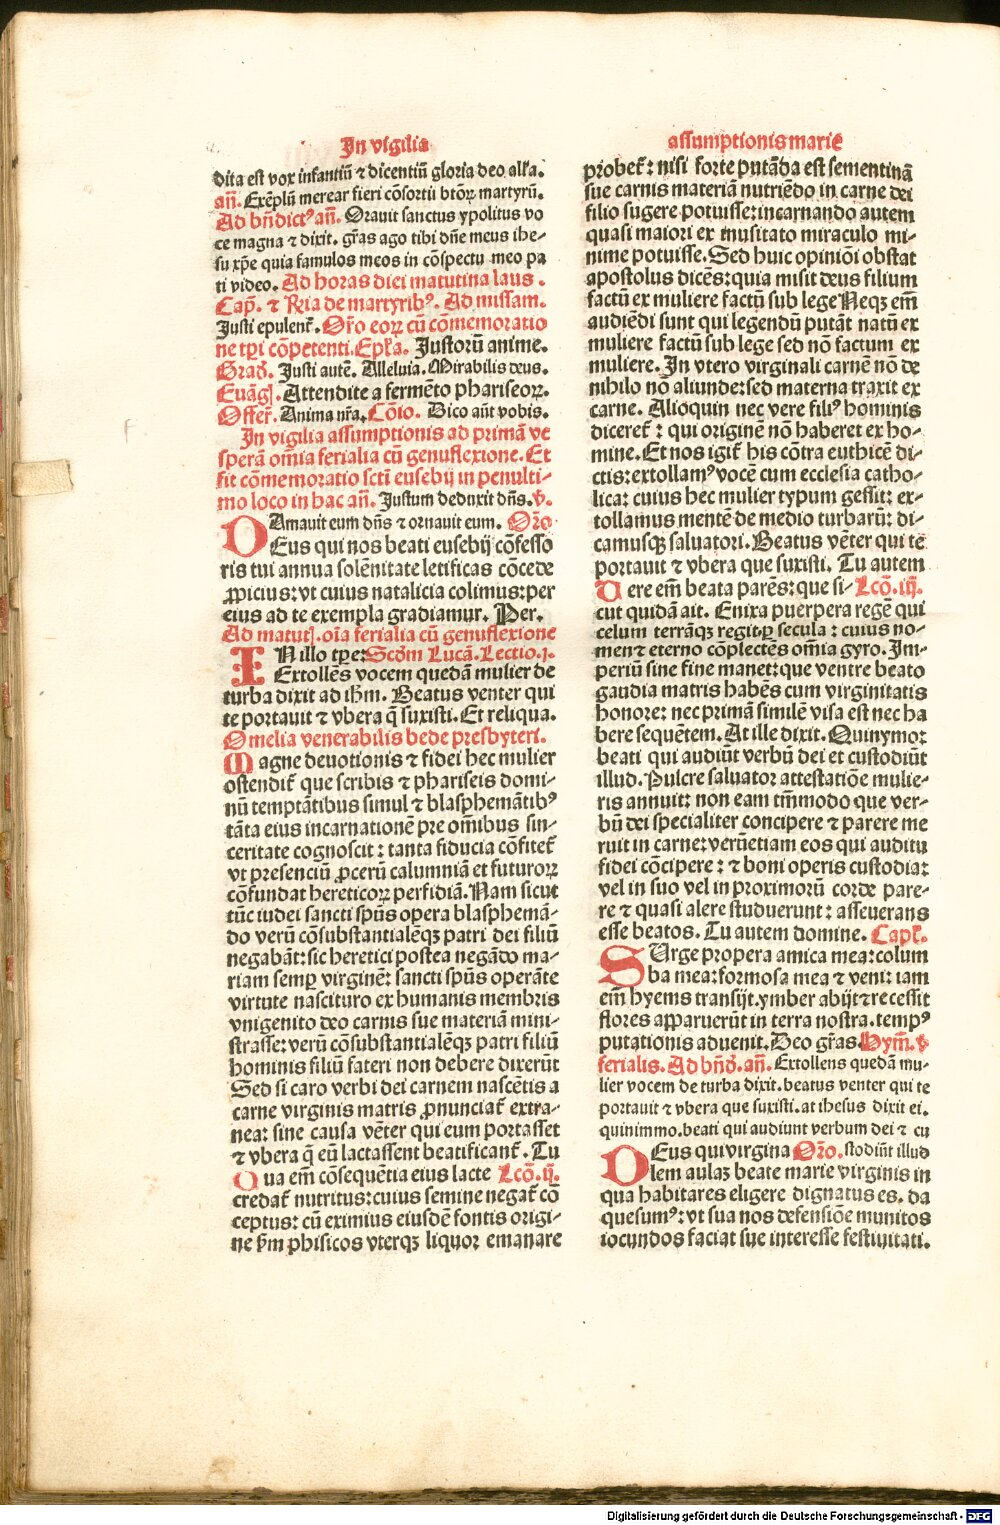 In vigilia
dita est vox infantiū ⁊ dicentiū gloria deo alľa.
añ. Exēplū merear fieri cōsortii btōꝝ martyrū.
Ad bn̄dictꝰ añ. Orauit sanctus ypolitus vo
ce magna ⁊ dixit. gr̄as ago tibi dn̄e meus ihe-
su xp̄e quia famulos meos in cōspectu meo pa
ti video. Ad horas diei matutina laus.
Cap̄. ⁊ R̄ia de martyribꝰ. Ad missam.
Justi epulent᷑. Or̄o eoꝝ cū cōmemoratio
ne tp̄i cōpetenti. Ep̄ľa. Justorū anime.
Grad̄. Justi autē. Alleluia. Mirabilis deus.
Euāgl̄. Attendite a fermēto phariseoꝝ.
Offer̄. Anima nr̄a. Cōio. Dico aūt vobis.
In vigilia assumptionis ad primā ve
sperā om̄ia ferialia cū genuflexione. Et
fit cōmemoratio sctī eusebij in penulti-
mo loco in hac añ. Justum deduxit dn̄s. ꝟ.
Amauit eum dn̄s ⁊ ornauit eum. Or̄o
DEus qui nos beati eusebij cōfesso
ris tui annua solēnitate letificas cōcede
ꝓpicius: vt cuius natalicia colimus: per
eius ad te exempla gradiamur. Per.
Ad matutˀ. oīa ferialia cū genuflexione
IN illo tp̄e: Scd̄m Lucā. Lectio .j.
Extollēs vocem quedā mulier de
turba dixit ad ih̄m. Beatus venter qui
te portauit ⁊ vbera q̄ suxisti. Et reliqua.
Omelia venerabilis bede presbyteri.
Magne deuotionis ⁊ fidei hec mulier
ostendit᷑ que scribis ⁊ phariseis domi-
nū temptātibus simul ⁊ blasphemātibꝰ
tāta eius incarnationē pre om̄ibus sin-
ceritate cognoscit: tanta fiducia cōfitet᷑
vt presenciū ꝓcerū calumniā et futuroꝝ
cōfundat hereticoꝝ perfidiā. Nam sicut
tūc iudei sancti spūs opera blasphemā-
do verū cōsubstantialēqꝫ patri dei filiū
negabāt: sic heretici postea negādo ma-
riam semꝑ virginē: sancti spūs operāte
virtute nascituro ex humanis membris
vnigenito deo carnis sue materiā mini-
strasse: verū cōsubstantialēqꝫ patri filiū
hominis filiū fateri non debere dixerūt
Sed si caro verbi dei carnem nascētis a
carne virginis matris ꝓnunciat᷑ extra-
nea: sine causa vēter qui eum portasset
⁊ vbera q̄ eū lactassent beatificant᷑. Tu
Qua em̄ cōsequētia eius lacte Lcō. ij.
credat᷑ nutritus: cuius semine negat᷑ cō
ceptus: cū eximius eiusdē fontis origi-
ne ẜm phisicos vterqꝫ liquor emanare
assumptionis marie
probet᷑: nisi forte putāda est sementinā
sue carnis materiā nutriēdo in carne dei
filio sugere potuisse: incarnando autem
quasi maiori ex inusitato miraculo mi-
nime potuisse. Sed huic opinioni obstat
apostolus dicēs: quia misit deus filium
factū ex muliere factū sub lege Neqꝫ em̄
audiēdi sunt qui legendū putāt natū ex
muliere factū sub lege sed nō factum ex
muliere. In vtero virginali carnē nō de
nihilo nō aliunde: sed materna traxit ex
carne. Alioquin nec vere filiꝰ hominis
diceret᷑: qui originē nō haberet ex ho-
mine. Et nos igit᷑ his cōtra euthicē di-
ctis: extollamꝰ vocē cum ecclesia catho-
lica: cuius hec mulier typum gessit: ex-
tollamus mentē de medio turbarū: di-
camusqꝫ saluatori. Beatus vēter qui te
portauit ⁊ vbera que suxisti. Tu autem
Uere em̄ beata parēs: que si- Lcō. iij.
cut quidā ait. Enixa puerpera regē qui
celum terrāqꝫ regit ꝑ secula: cuius no-
men ⁊ eterno cōplectēs om̄ia gyro. Im-
periū sine fine manet: que ventre beato
gaudia matris habēs cum virginitatis
honore: nec primā similē visa est nec ha
bere sequētem. At ille dixit. Quinymoꝫ
beati qui audiūt verbū dei et custodiūt
illud. Pulcre saluator attestatiōe mulie-
ris annuit: non eam tm̄modo que ver-
bū dei specialiter concipere ⁊ parere me
ruit in carne: verūetiam eos qui auditu
fidei cōcipere: ⁊ boni operis custodia:
vel in suo vel in proximorū corde pare-
re ⁊ quasi alere studuerunt: asseuerans
esse beatos. Tu autem domine. Capľ.
SUrge propera amica mea: colum
ba mea: formosa mea ⁊ veni: iam
em̄ hyems transijt. ymber abijt ⁊ recessit
flores apparuerūt in terra nostra. tempꝰ
putationis aduenit. Deo gr̄as. Hym̄. ꝟ
ferialis. Ad bn̄d̄. añ. Extollens quedā mu-
lier vocem de turba dixit. beatus venter qui te
portauit ⁊ vbera que suxisti. at ihesus dixit ei.
quinimmo. beati qui audiunt verbum dei ⁊ cu
DEus qui virgina Or̄o. stodiūt illud
lem aulaꝫ beate marie virginis in
qua habitares eligere dignatus es. da
quesumꝰ: vt sua nos defensiōe munitos
iocundos faciat sue interesse festiuitati.
Digitalisierung gefördert durch die Deutsche Forschungsgemeinschaft - DFG